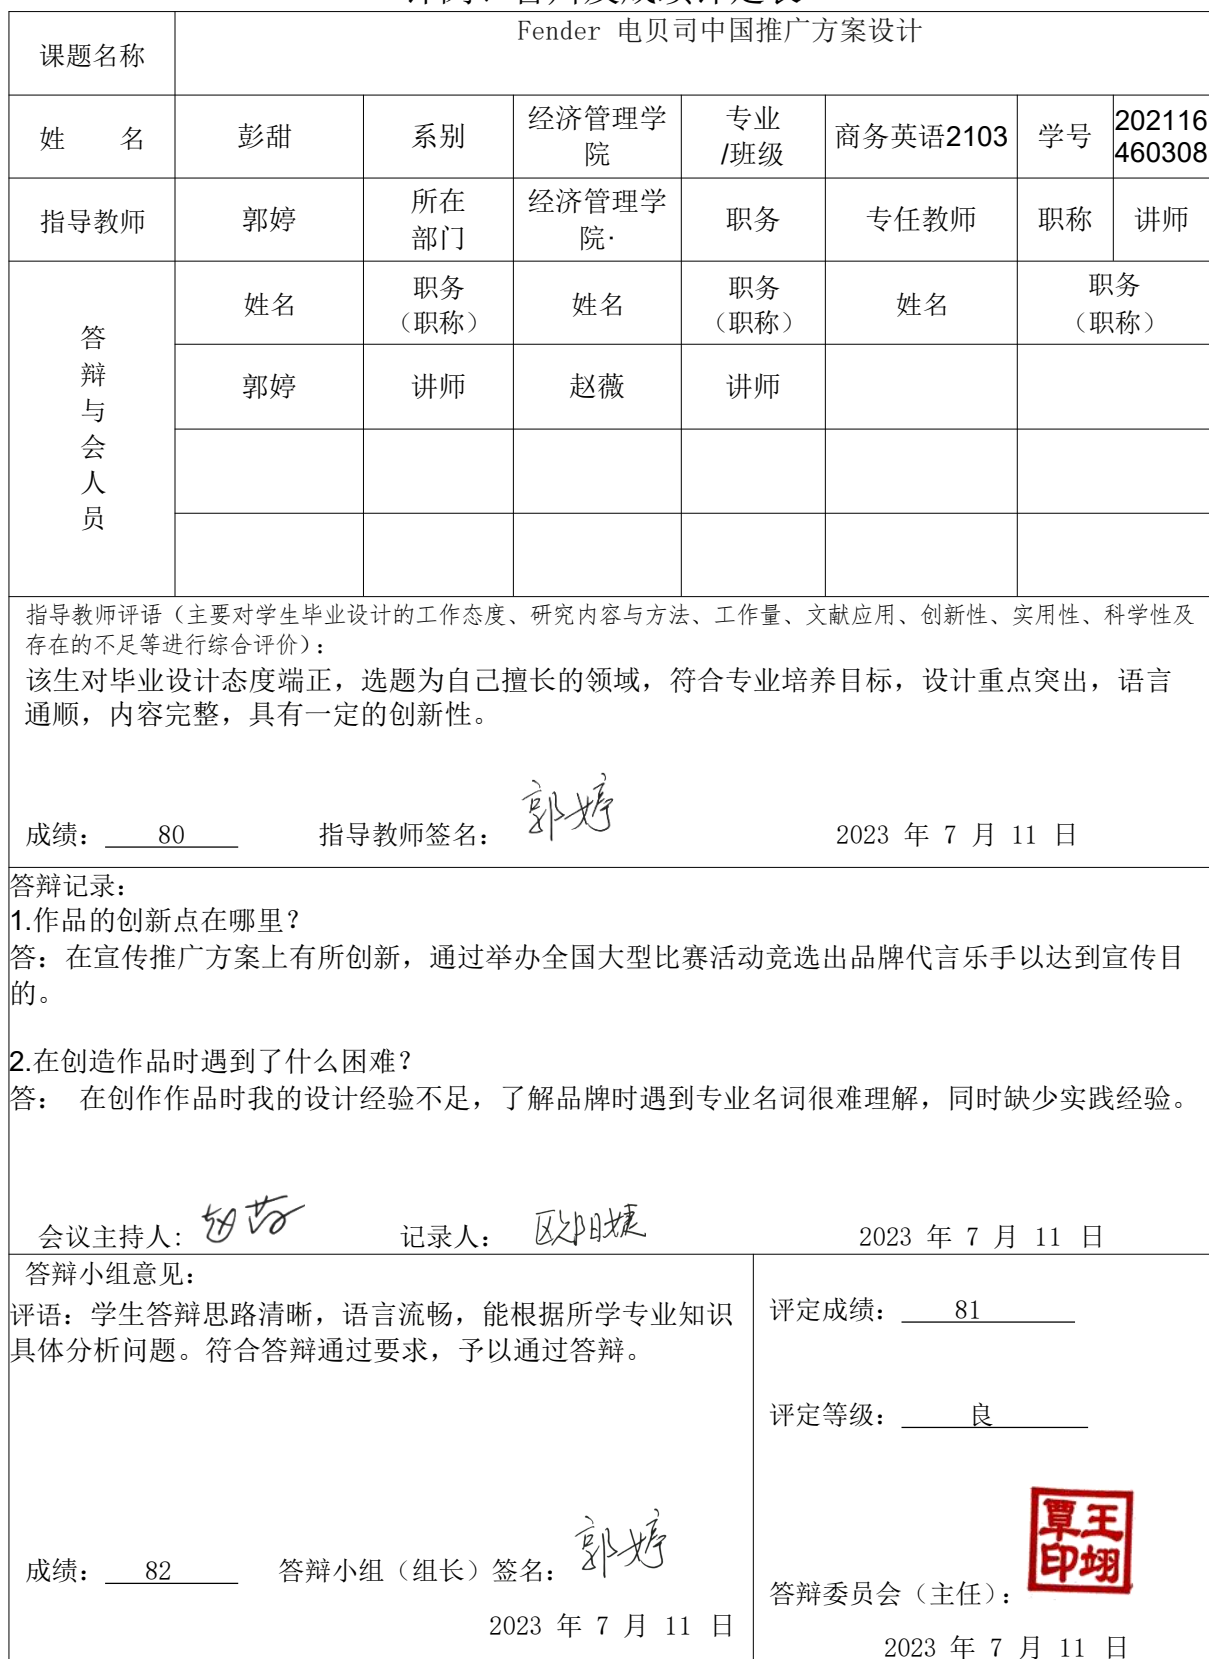 课题名称
Fender 电贝司中国推广方案设计
姓 名
彭甜
系别
经济管理学
院
专业
/班级
商务英语2103
学号
202116
460308
指导教师
郭婷
所在
部门
经济管理学
院·
职务
专任教师
职称
讲师
答
辩
与
会
人
员
姓名
职务
（职称）
姓名
职务
（职称）
姓名
职务
（职称）
郭婷
讲师
赵薇
讲师
指导教师评语（主要对学生毕业设计的工作态度、研究内容与方法、工作量、文献应用、创新性、实用性、科学性及
存在的不足等进行综合评价）：
该生对毕业设计态度端正，选题为自己擅长的领域，符合专业培养目标，设计重点突出，语言
通顺，内容完整，具有一定的创新性。
成绩： 80 指导教师签名： 郭婷 2023 年 7 月 11 日
答辩记录：
1.作品的创新点在哪里？
答：在宣传推广方案上有所创新，通过举办全国大型比赛活动竞选出品牌代言乐手以达到宣传目
的。
2.在创造作品时遇到了什么困难？
答： 在创作作品时我的设计经验不足，了解品牌时遇到专业名词很难理解，同时缺少实践经验。
会议主持人: 赵薇 记录人： 欧阳婕 2023 年 7 月 11 日
答辩小组意见：
评语：学生答辩思路清晰，语言流畅，能根据所学专业知识
具体分析问题。符合答辩通过要求，予以通过答辩。
成绩： 82 答辩小组（组长）签名： 郭婷
2023 年 7 月 11 日
评定成绩： 81
评定等级： 良
答辩委员会（主任）：
覃王
印翊
2023 年 7 月 11 日